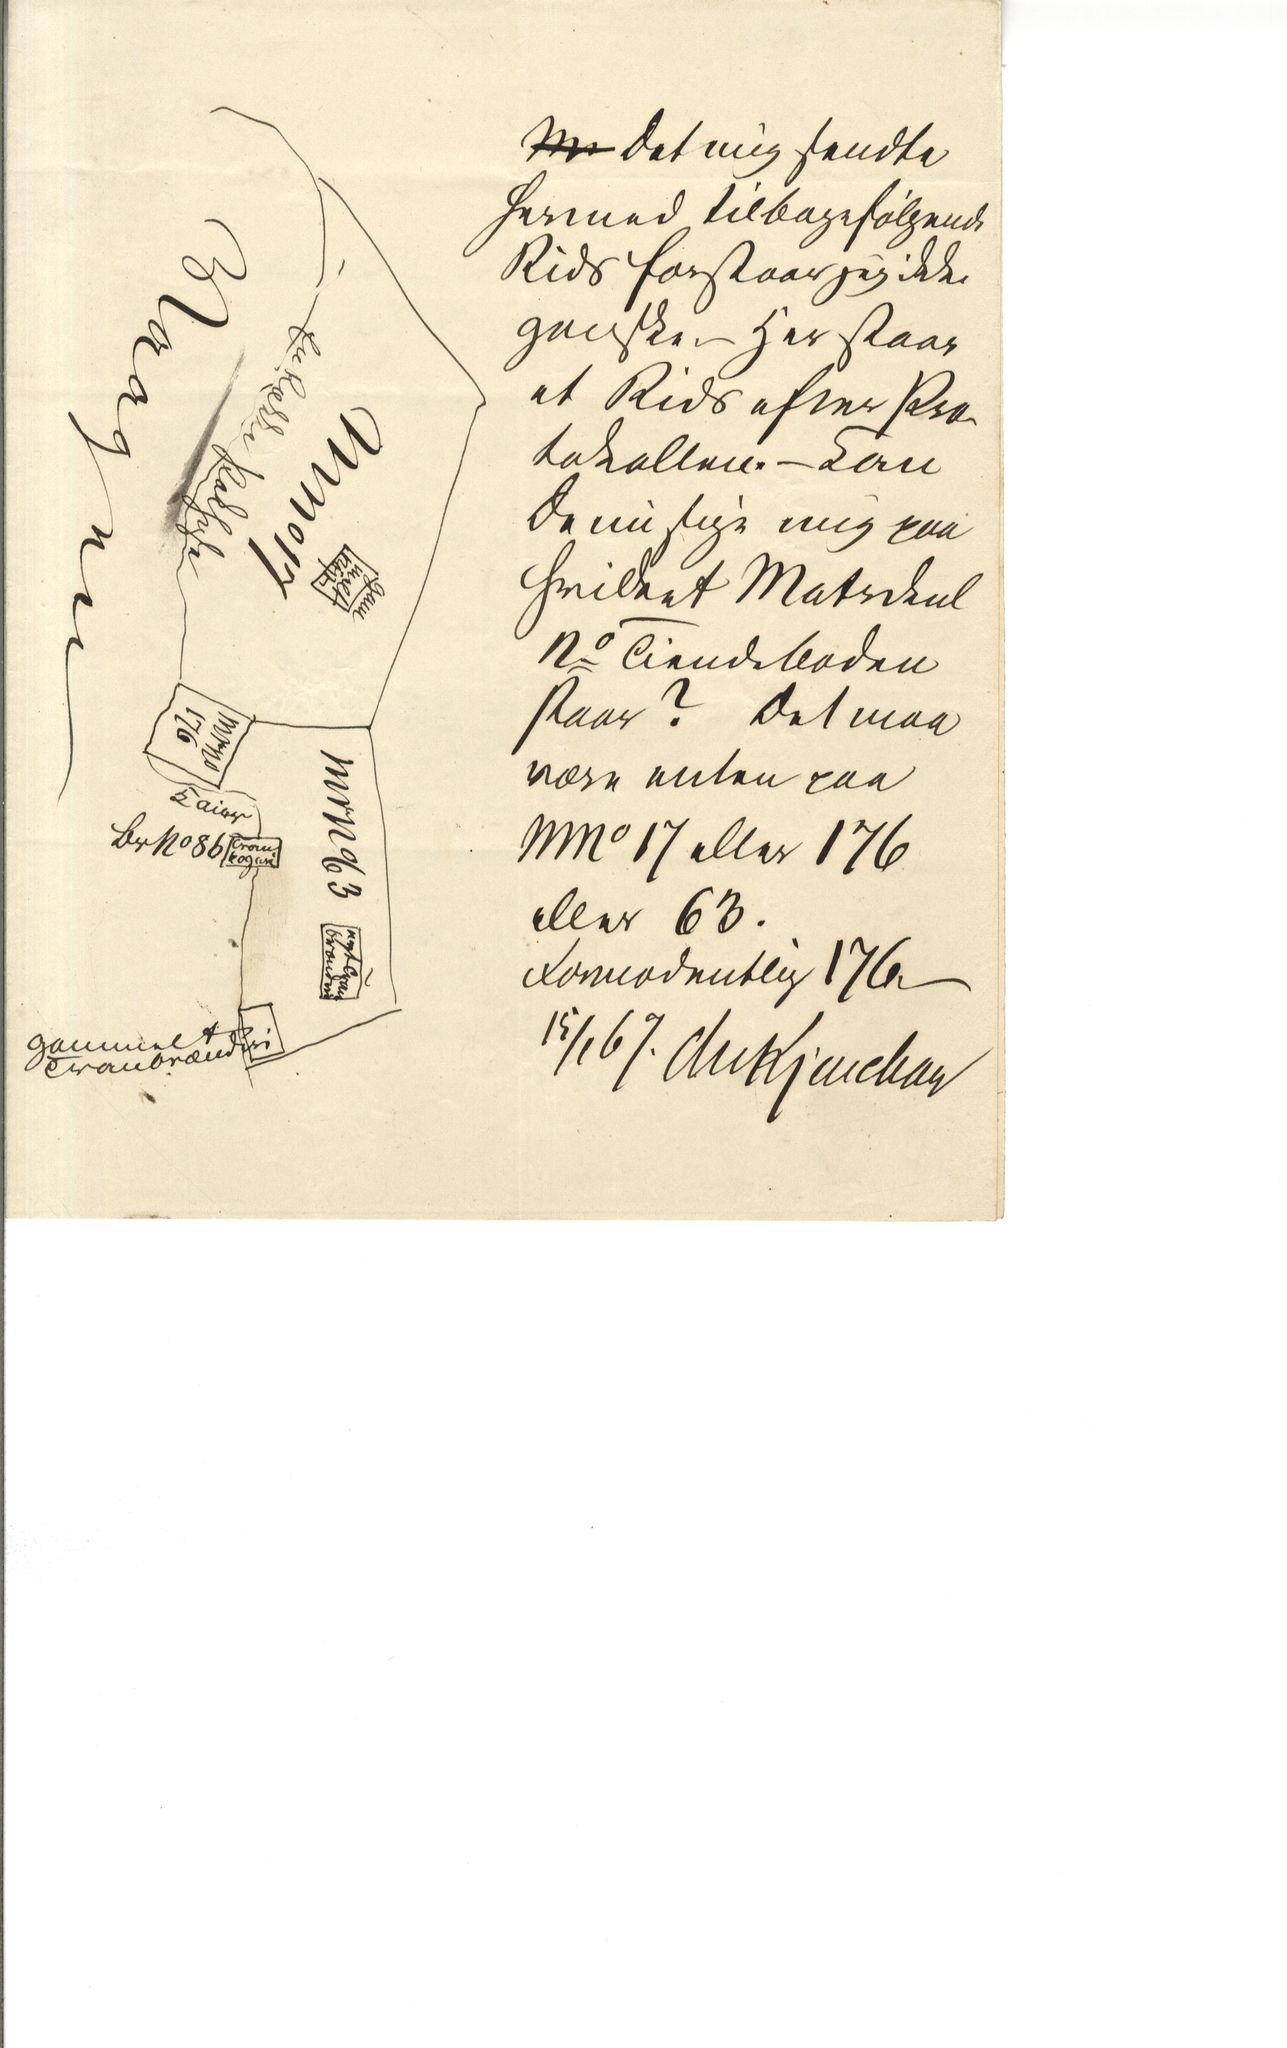 Det mig sendte
hermed tilbagefølgende
Rids forstaar jeg ikke
ganske. – Her staar
et Rids efter Pro-
tokollen. – Kan
De nu sige mig paa
hvilket Matrikul
No Tiendeboden
staar? Det maa
være enten paa
MNo 17 eller 176
eller 63.
Formodentlig 176. –
15/1 67.
Vaagen
MNo 17
MNo
176
Kaier
Br No 86
Tran
kogeri
MrN 63
gammelt
Tranbrænderi